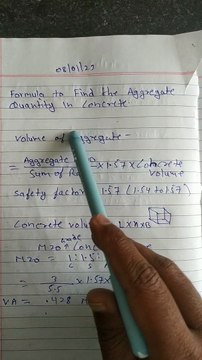 08/01/22
Formula to Find the Aggregate
Quantity in Concrete
Volume of Aggregate -
= Aggregate
Sum of
× 1.57 × Concrete
Volume
Safety factor 1.57 (1.54 to 1.57)
Concrete volume
Code
M20
M20 = 1:1.5:
C S
= 3
5.5
× 1.57 ×
VA = .428